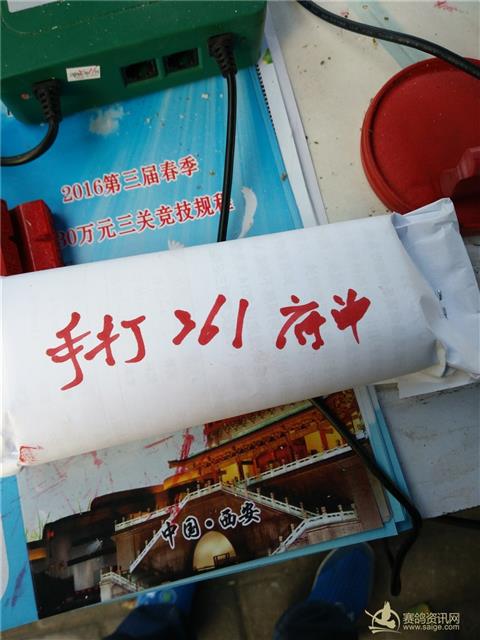 2016第三届春季
30万元三关竞技规程
手打 261
中国·西安
赛鸽资讯网
www.saige.com